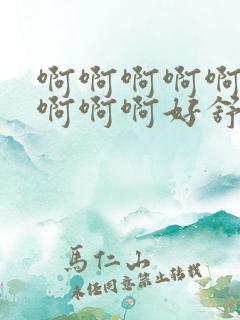 啊啊啊啊啊
啊啊啊好舒
馬仁山
未经同意禁止转载